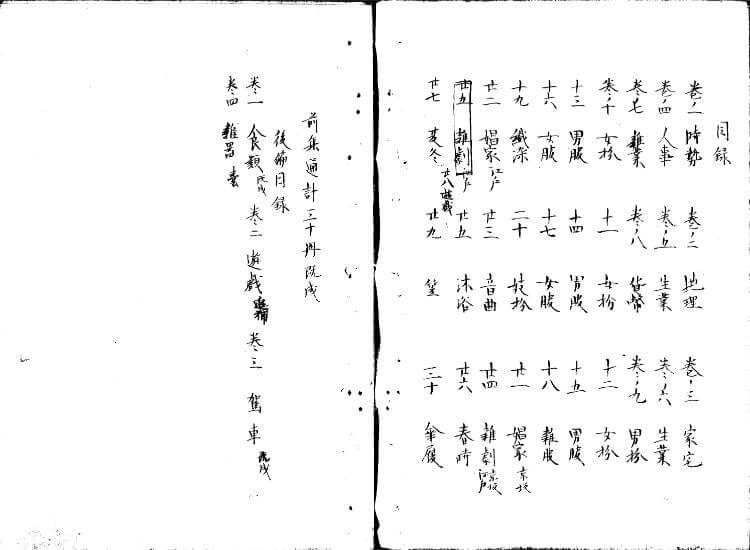 目録
巻之一 時勢 巻之二 地理 巻之三 家宅
巻之四 人事 巻之五 生業 巻之六 生業
巻之七 雑業 巻之八 貨幣 巻之九 男扮
巻之十 女扮 十一 女扮 十二 女扮
十三 男服 十四 男服 十五 男服
十六 女服 十七 女服 十八 雑服
十九 織染 二十 妓扮 廿一 娼家 京坂
廿二 娼家 江戸 廿三 音曲 廿四 雑劇 京坂 江戸
廿五 雑劇 江戸 廿五 沐浴 廿六 春時
廿七 夏冬 廿八 遊戯 廿九 笠 三十 傘履
前集通計三十冊既成
後篇目録
巻之一 食類 既成 巻之二 遊戯 追補 巻之三 駕車 既成
巻之四 雑器 嚢